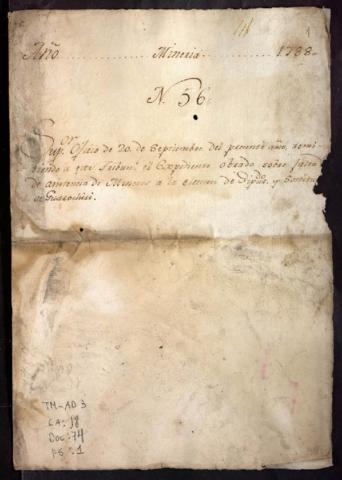 1
Año ........ Mineria ........ 1788.
N. 56.
Supor. Oficio de 20 de Septiembre del presente año, remi-
tiendo a este Tribunl. el Expediente obrado sobre falta
de asistencia de Mineros a la eleccion de Dipdos. y
de Guarochiri.
TM-AD 3
CA: 18
Doc: 74
FS: 1